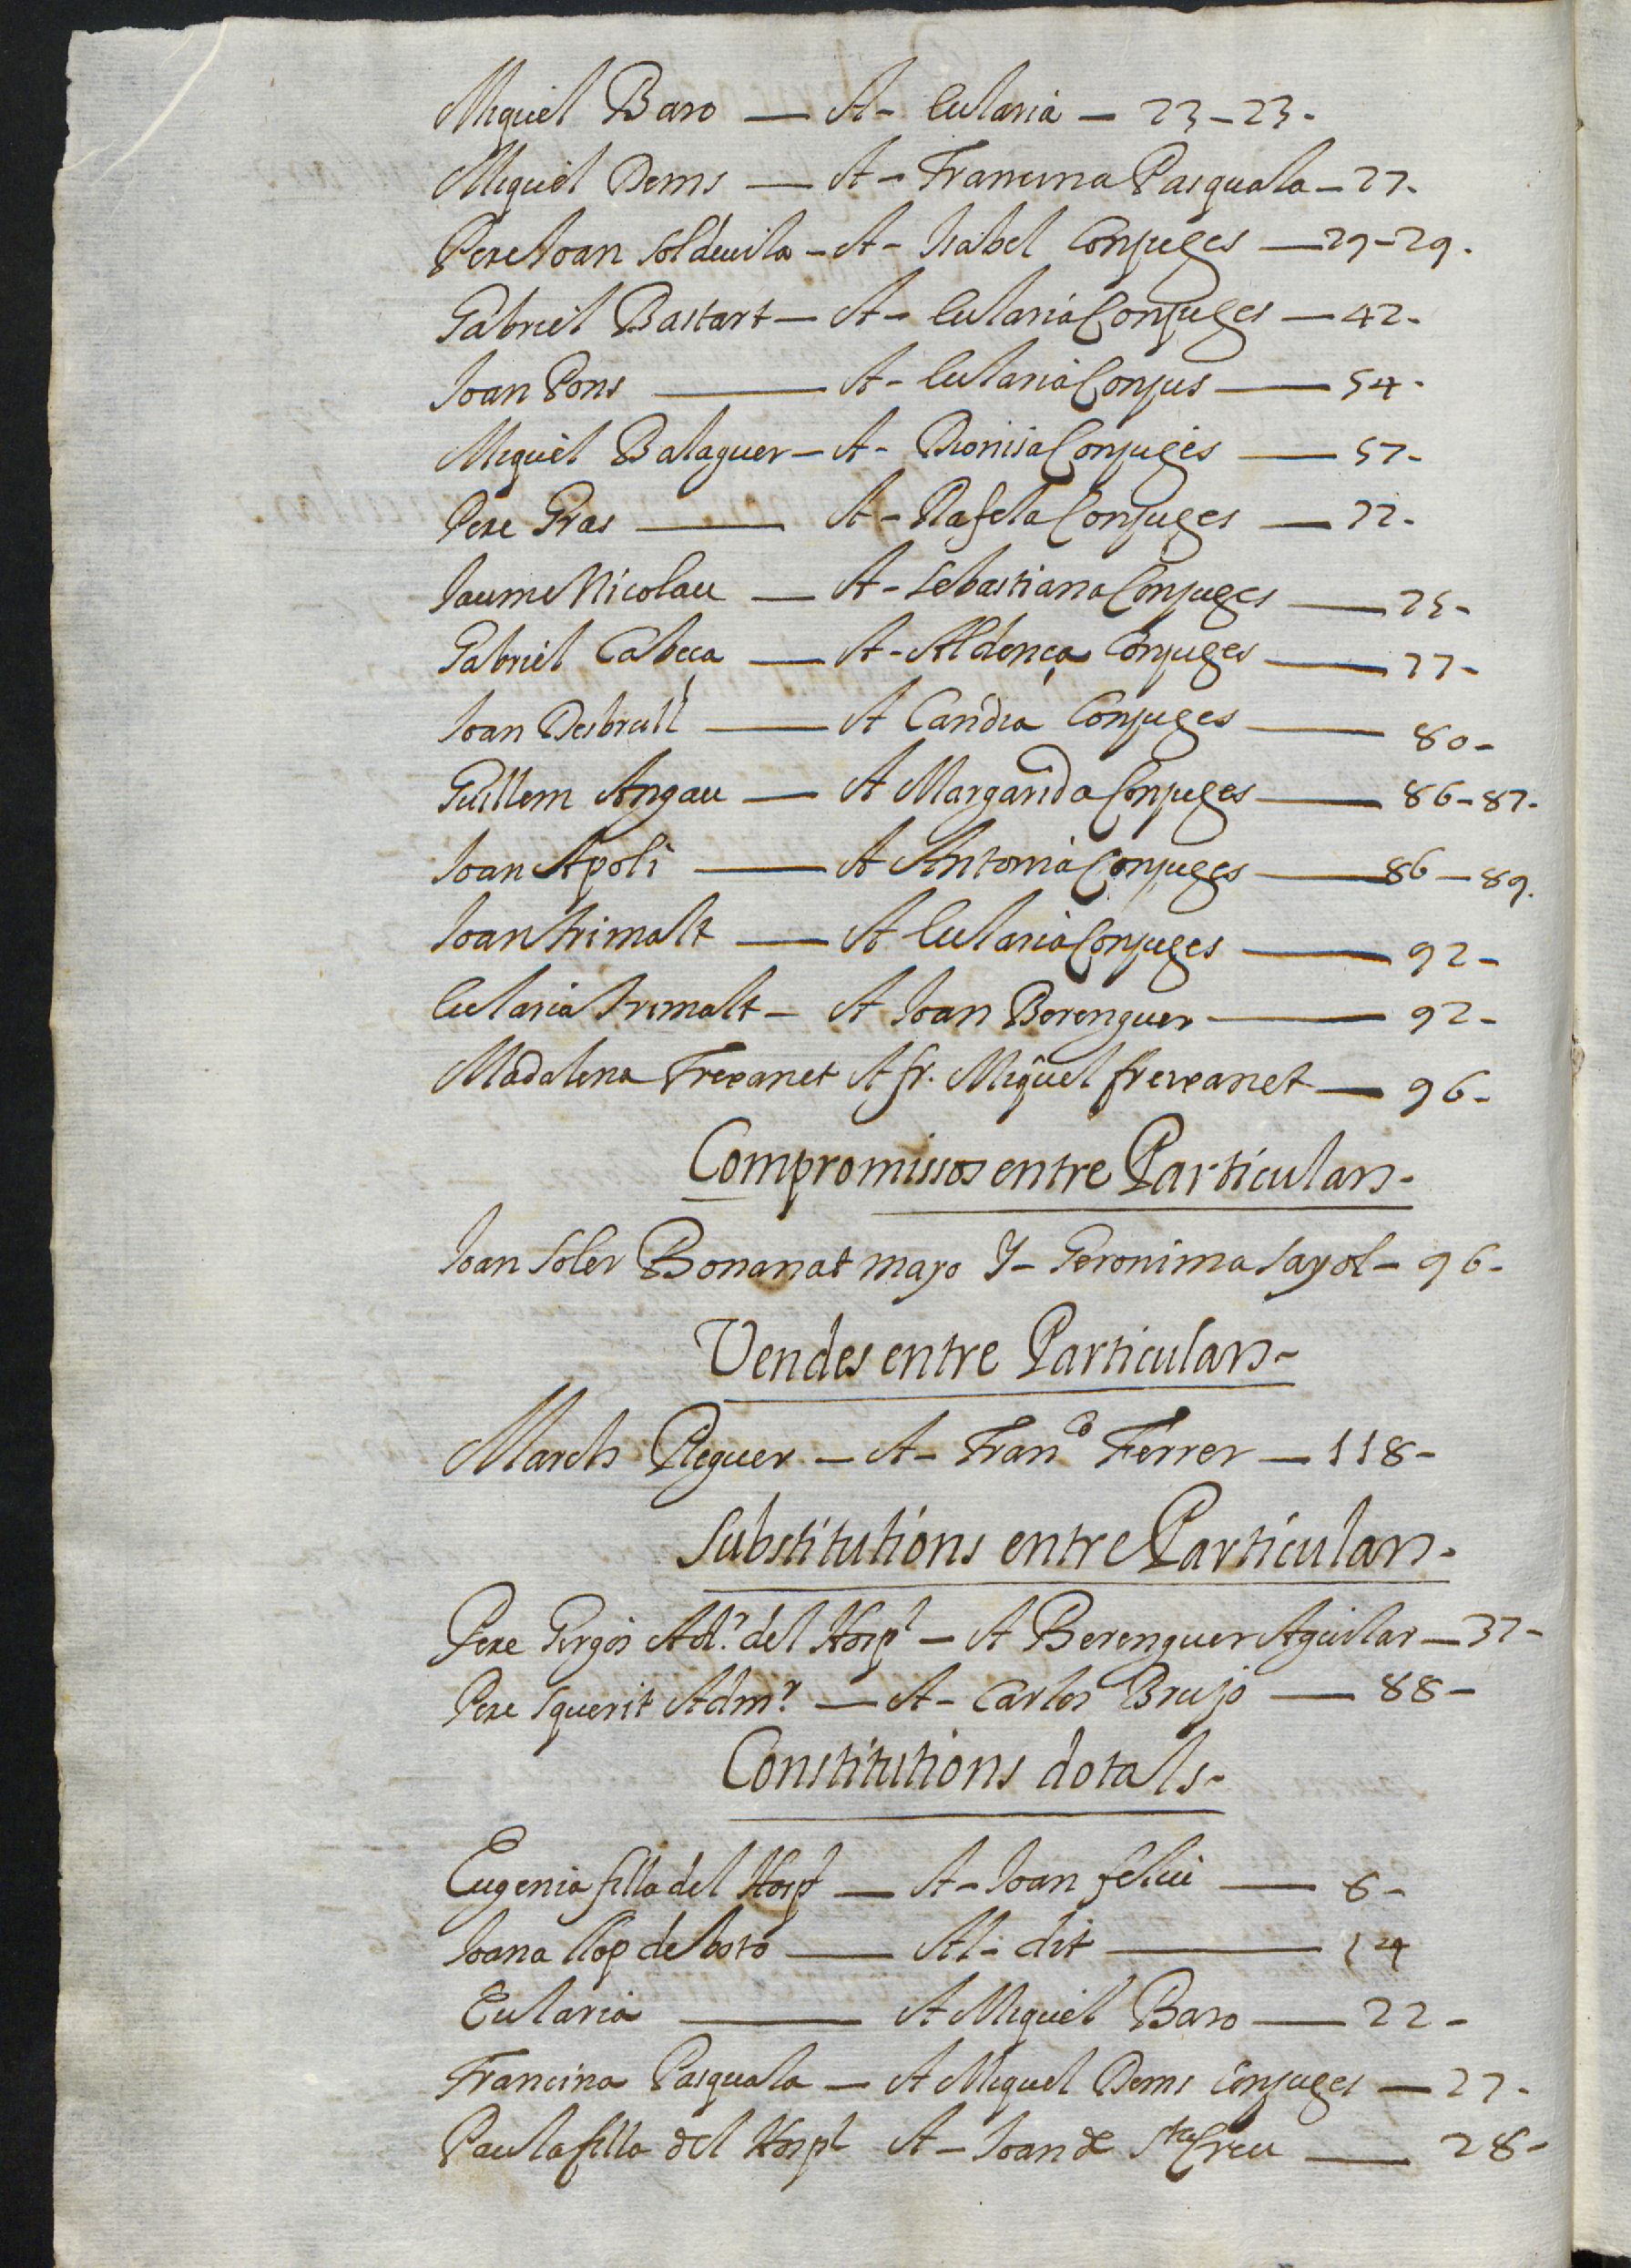 Miquel Baro — A - Eularia — 23 - 23 -
Miquel Dems — A - Francina Pasquala - 27 -
Pere Joan Soldevila - A - Isabel Conjuges — 29 - 29 .
Gabriel Bastart — A - Eularia Conjuges — 42 -
Joan Pons — A - Eularia Conjus — 54 -
Miquel Balaguer - A - Dionisia Conjuges — 57 -
Pere Gras — A - Rafela Conjuges — 72 -
Jaume Nicolau — A - Sebastiana Conjuges — 75 -
Gabriel Cabeça — A - Aldonça Conjuges — 77 -
Joan Desbrull — A Candia Conjuges — 80 -
Guillem Angau — A Margarida Conjuges — 86 - 87 -
Joan Apoli — A Antonia Conjuges — 86 - 89 .
Joan Trimalt — A Eularia Conjuges — 92 -
Eularia Trimalt - A Joan Berenguer — 92 -
Madalena Frexanet A fr. Miquel frexanet — 96 -
Compromissos entre Particulars -
Joan Soler Bonanat mayo Y - Geronima Sayol - 96 -
Vendes entre Particulars -
March Reguer - A - Fran.co Ferrer — 118 -
Substitutions entre Particulars -
Pere Girgos Ad.r del Hosp.l - A Berenguer Aguilar — 37 -
Pere Squerit Adm.r — A - Carlos Brujo — 88 -
Constitutions dotals -
Eugenia filla del Hosp.l — A - Joan feliu — 6 -
Joana llop de boto — Al - dit — 14
Eularia — A Miquel Baro — 22 -
Francina Pasquala — A Miquel Dems Conjuges — 27 -
Paula filla del Hosp.l A - Joan de S.ta Creu — 28 -